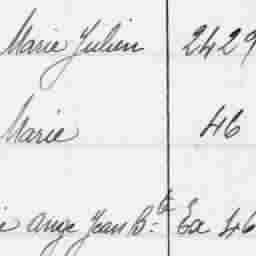 Marie Julien 2429
Marie 46
e Ange Jean B.te Ea 46